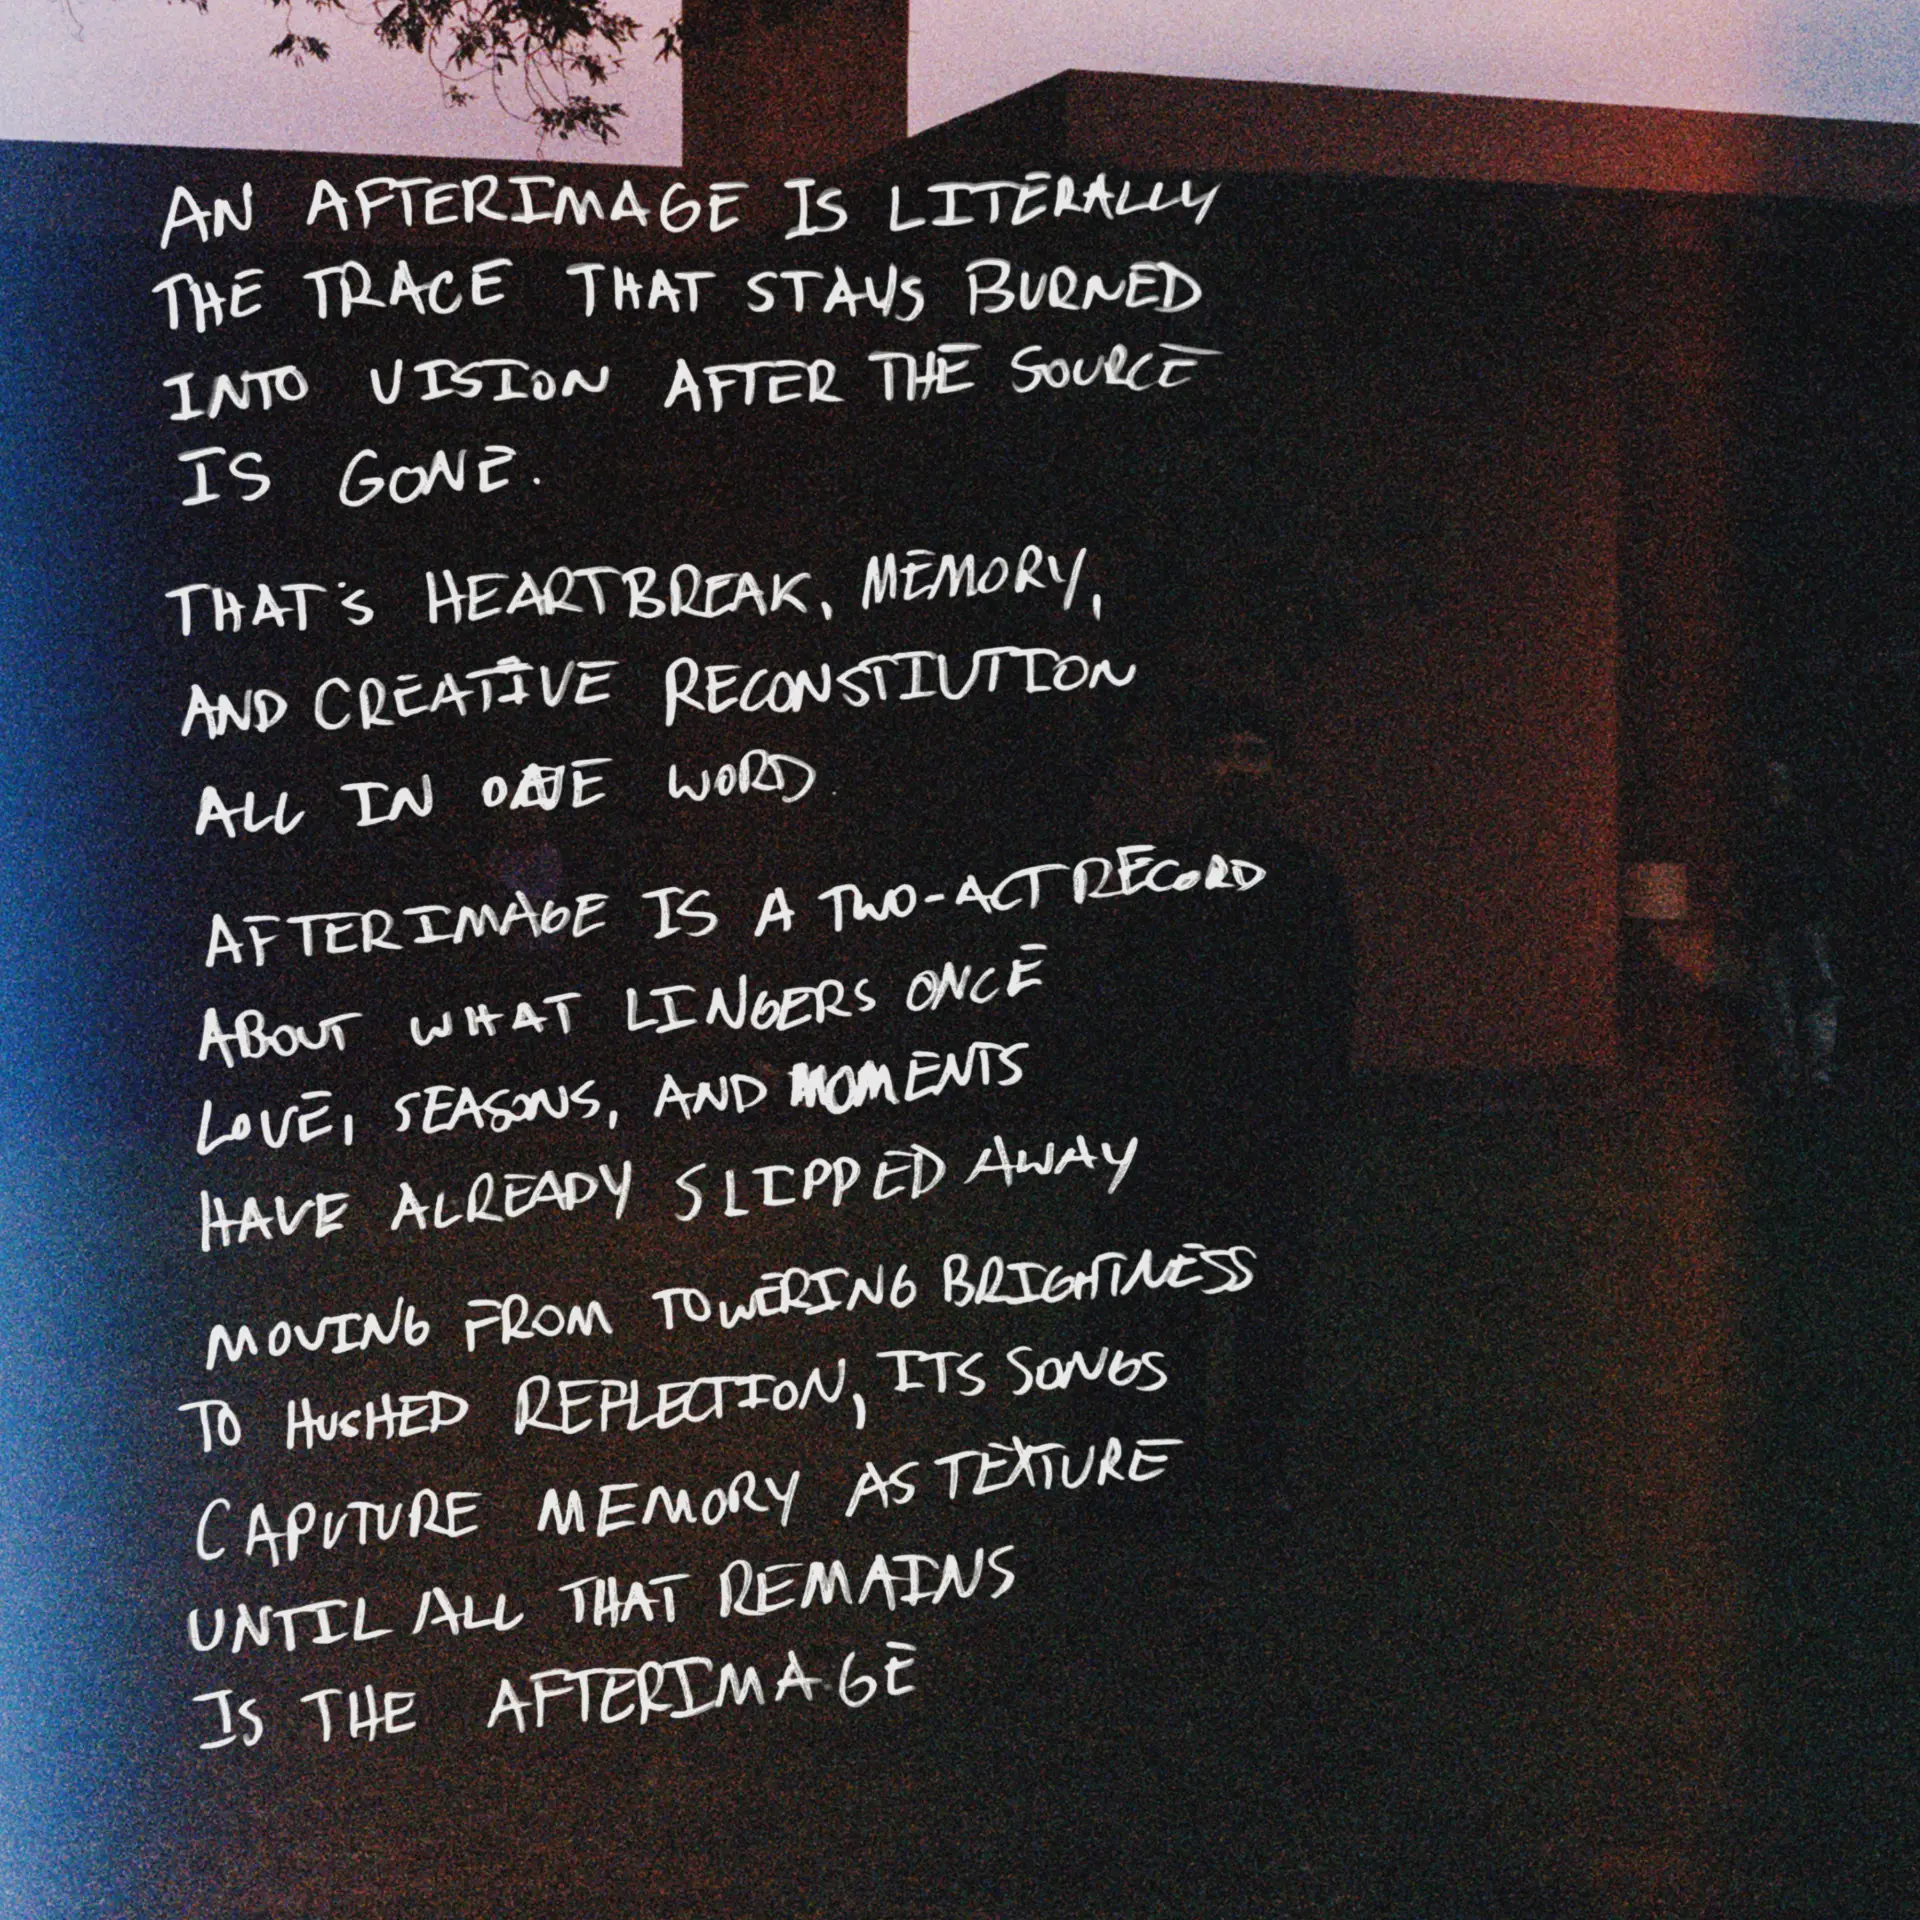 AN AFTERIMAGE IS LITERALLY
THE TRACE THAT STAYS BURNED
INTO VISION AFTER THE SOURCE
IS GONE.
THAT'S HEARTBREAK, MEMORY,
AND CREATIVE RECONSTIUTION
ALL IN ONE WORD.
AFTERIMAGE IS A TWO-ACT RECORD
ABOUT WHAT LINGERS ONCE
LOVE, SEASONS, AND MOMENTS
HAVE ALREADY SLIPPED AWAY
MOVING FROM TOWERING BRIGHTNESS
TO HUSHED REFLECTION, ITS SONGS
CAPUTURE MEMORY AS TEXTURE
UNTIL ALL THAT REMAINS
IS THE AFTERIMAGE